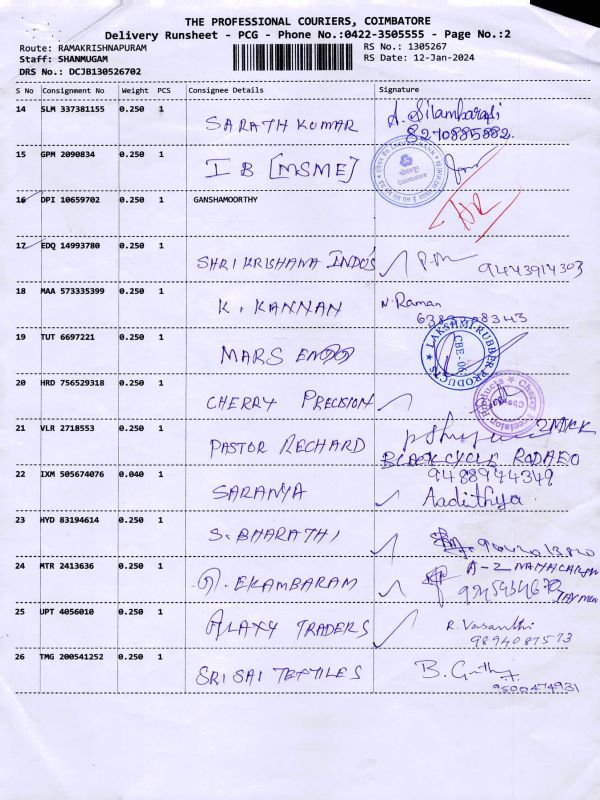 THE PROFESSIONAL COURIERS, COIMBATORE
Delivery Runsheet - PCG - Phone No.:0422-3505555 - Page No.:2
Route: RAMAKRISHNAPURAM RS No.: 1305267
Staff: SHANMUGAM RS Date: 12-Jan-2024
DRS No.: DCJB130526702
S No Consignment No Weight PCS Consignee Details Signature
14 SLM 337381155 0.250 1 SARATH KUMAR A. Silambarasi
8270885882.
15 GPM 2090834 0.250 1 I B [MSME]
Coimbatore
16 DPI 10659702 0.250 1 GANSHAMOORTHY NR
17 EDQ 14993780 0.250 1 SHRI KRISHANA INDO'S P.M 9443914303
18 MAA 573335399 0.250 1 K. KANNAN N. Raman
19 TUT 6697221 0.250 1 MARS
LAKSHMI RUBBER PRODUCTS
20 HRD 756529318 0.250 1 CHERRY PRECISION
Cherry Precision Products
21 VLR 2718553 0.250 1 PASTOR RECHARD
22 IXM 505674076 0.040 1 SARANYA 9488944349
Aadithya.
23 HYD 83194614 0.250 1 S. BHARATHI
24 MTR 2413636 0.250 1 EKAMBARAM
25 UPT 4056010 0.250 1 TRADERS R. Vasanthi
9894087573
26 TMG 200541252 0.250 1 SRI SAI TEXTILES B.
9500474931